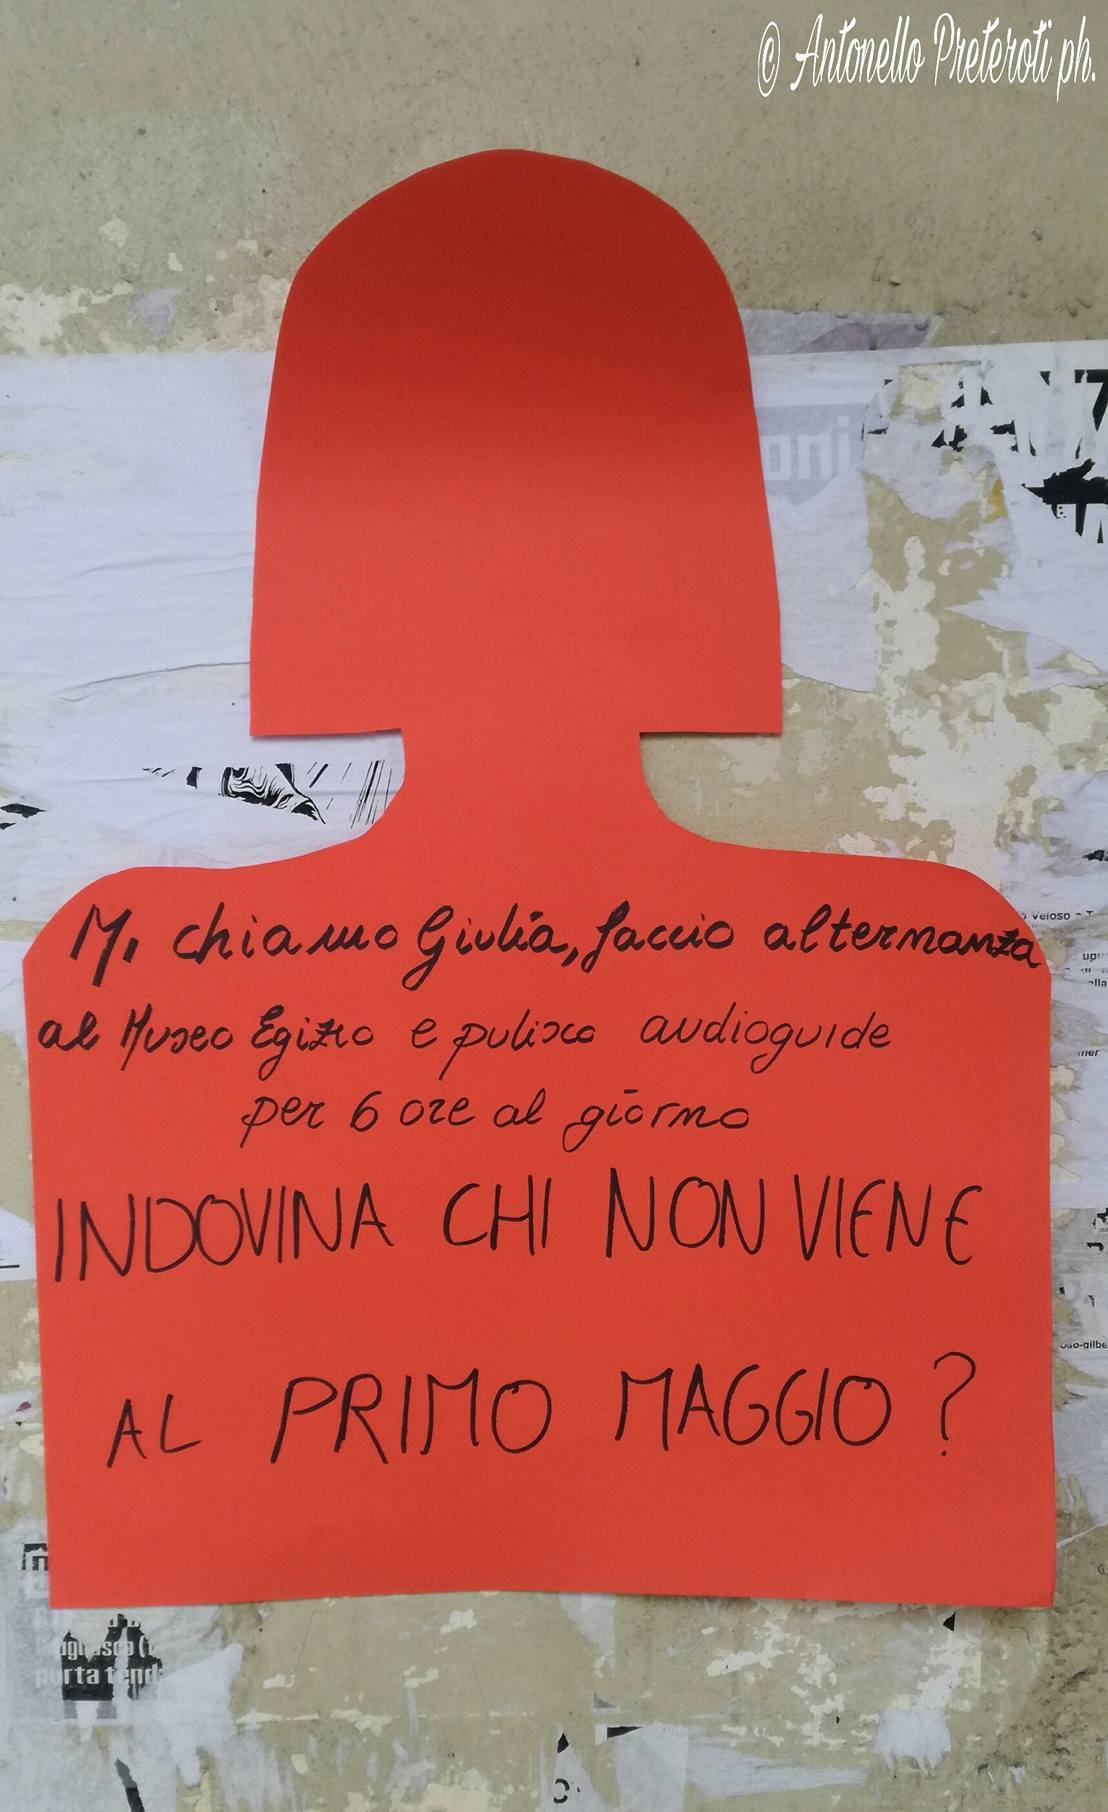 © Antonello Preteroti ph.
oni
Mi chiamo Giulia, faccio alternanza
al Museo Egizio e pulisco audioguide
per 6 ore al giorno
INDOVINA CHI NON VIENE
AL PRIMO MAGGIO?
Veloso
porta tend